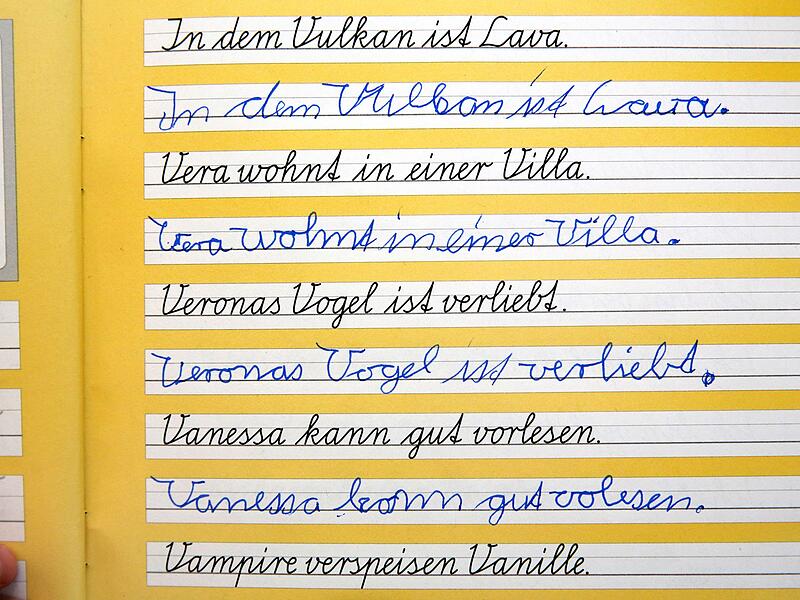 In dem Vulkan ist Lava.
In dem Vulkan ist Lava.
Vera wohnt in einer Villa.
Vera wohnt in einer Villa.
Veronas Vogel ist verliebt.
Veronas Vogel ist verliebt.
Vanessa kann gut vorlesen.
Vanessa kann gut volesen.
Vampire verspeisen Vanille.